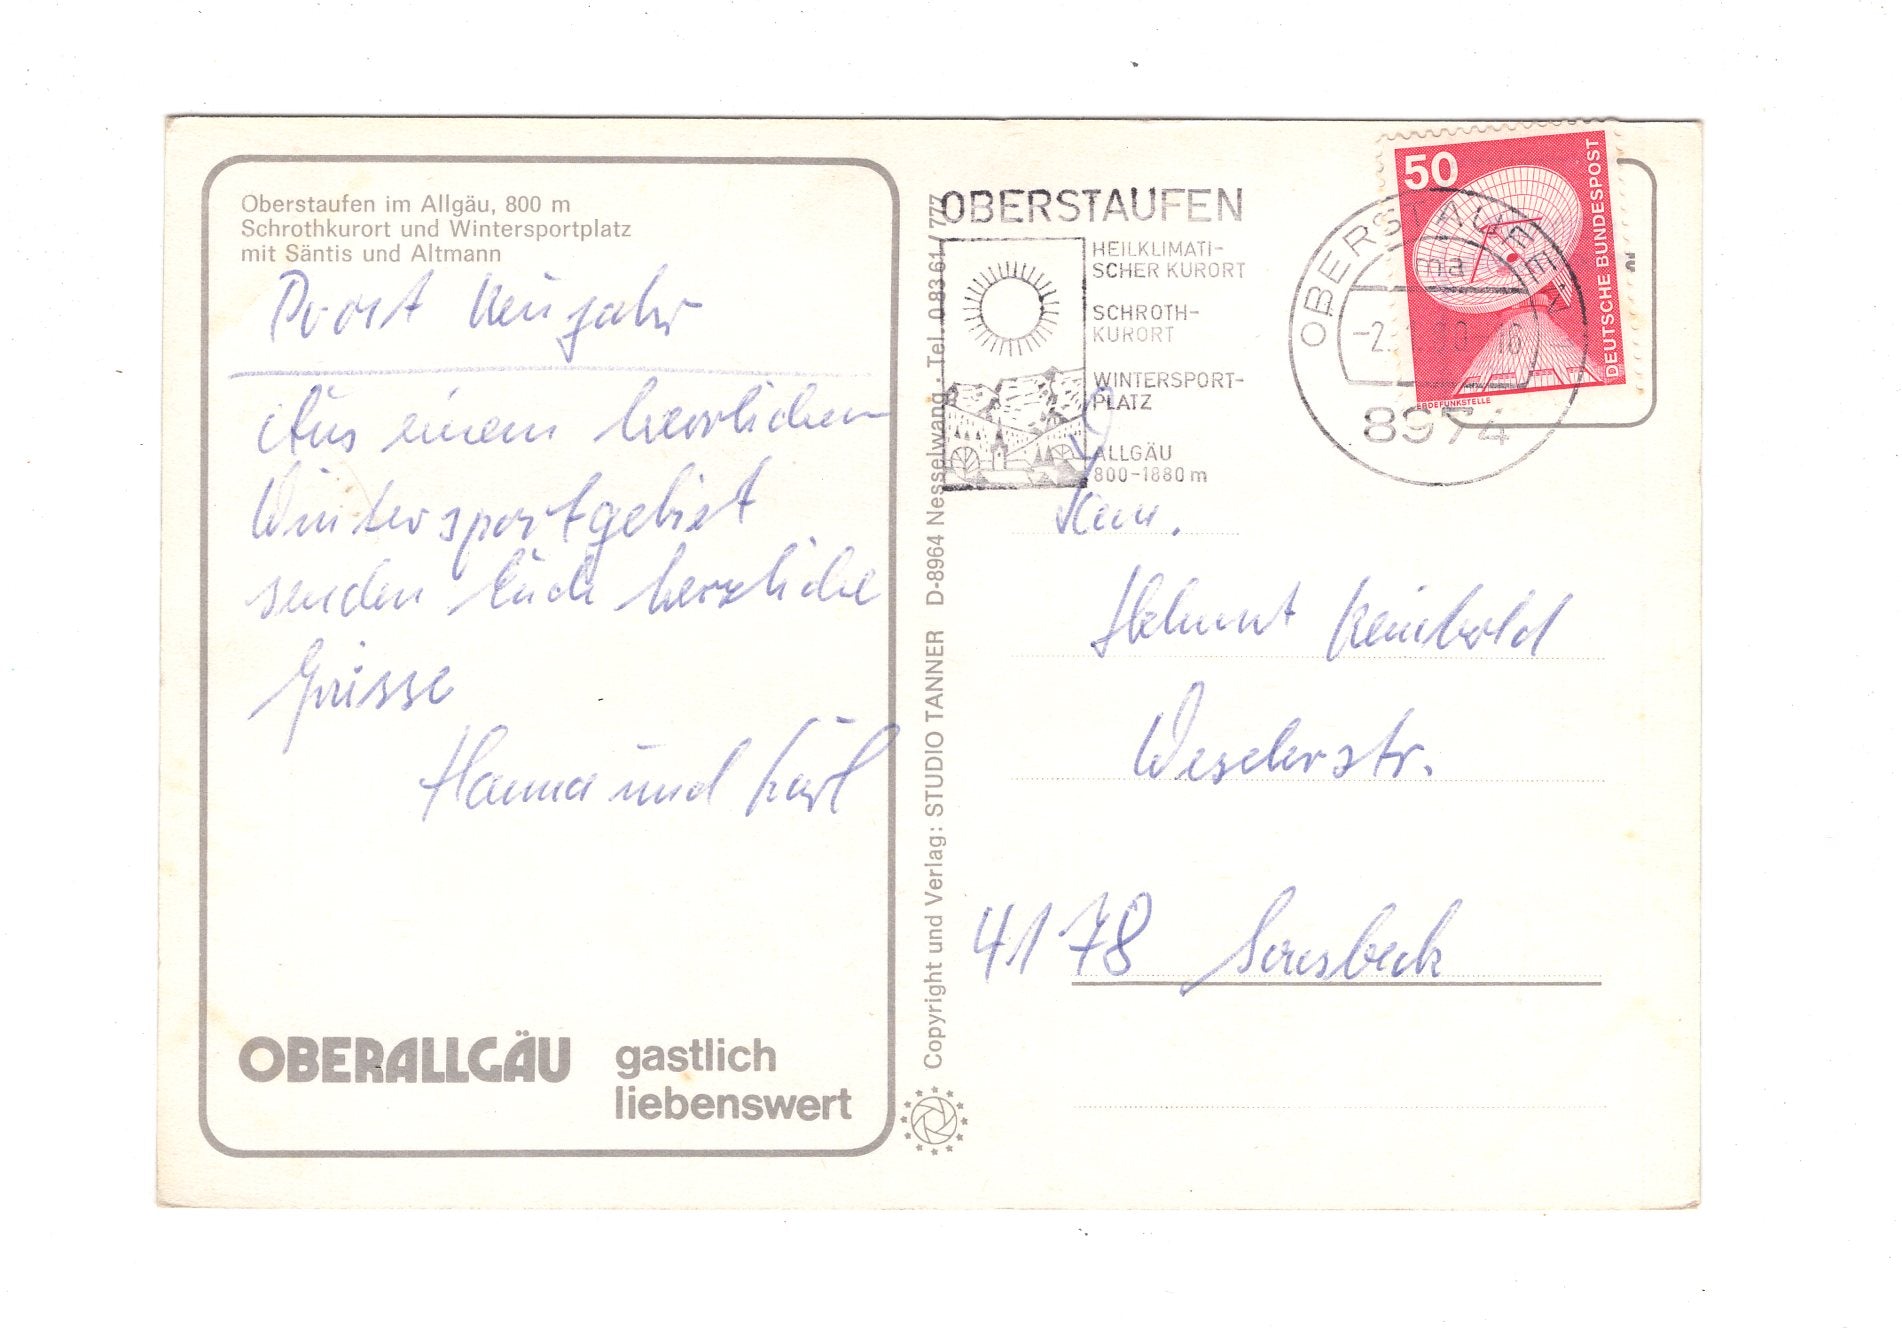 Oberstaufen im Allgäu, 800 m
Schrothkurort und Wintersportplatz
mit Säntis und Altmann
Prost Neujahr
Aus einem herrlichen
Wintersportgebiet
senden Euch herzliche
Grüsse
Hanna und Karl
OBERALLGÄU gastlich
liebenswert
Copyright und Verlag: STUDIO TANNER D-8964 Nesselwang · Tel. 08361/777
OBERSTAUFEN
HEILKLIMATI-
SCHER KURORT
SCHROTH-
KURORT
WINTERSPORT-
PLATZ
ALLGÄU
800-1880 m
OBERSTAUFEN
ma
8974
50
DEUTSCHE BUNDESPOST
ERDEFUNKSTELLE
Fam.
Helmut Reinbold
Weselerstr.
4178 Sonsbeck